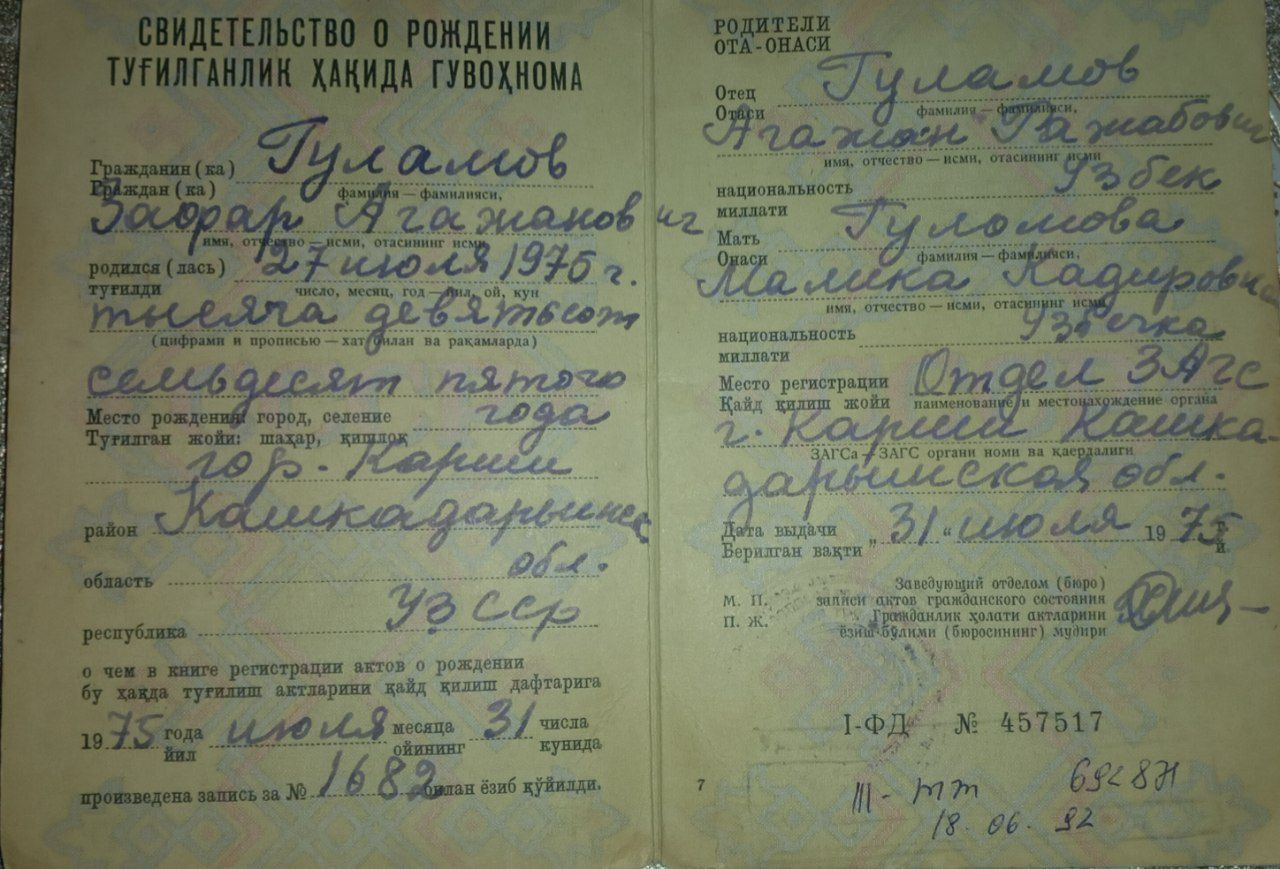 СВИДЕТЕЛЬСТВО О РОЖДЕНИИ
ТУҒИЛГАНЛИК ҲАҚИДА ГУВОҲНОМА
Гражданин (ка) Гуламов
Граждан (ка) фамилия — фамилияси,
Зафар Агажанович
имя, отчество — исми, отасининг исми
родился (лась) 27 июля 1975 г.
туғилди число, месяц, год — йил, ой, кун
тысяча девятьсот
(цифрами и прописью — хат билан ва рақамларда)
семьдесят пятого
Место рождения: город, селение года
Туғилган жойи: шаҳар, қишлоқ
гор. Карши
район Кашкадарьинск
область обл.
республика Уз ССР
о чем в книге регистрации актов о рождении
бу ҳақда туғилиш актларини қайд қилиш дафтарига
1975 года июля месяца 31 числа
йил ойининг кунида
произведена запись за № 1682 билан ёзиб қўйилди.
РОДИТЕЛИ
ОТА-ОНАСИ
Отец Гуламов
Отаси фамилия — фамилияси,
Агажан Ражабович
имя, отчество — исми, отасининг исми
национальность Узбек
миллати
Мать Гуломова
Онаси фамилия — фамилияси,
Малика Кадировна
имя, отчество — исми, отасининг исми
национальность Узбечка
миллати
Место регистрации Отдел ЗАГС
Қайд қилиш жойи наименование и местонахождение органа
г. Карши Кашка-
ЗАГСа — ЗАГС органи номи ва қаердалиги
дарьинская обл.
Дата выдачи „31“ июля 1975 г.
Берилган вақти й.
Заведующий отделом (бюро)
М. П. записи актов гражданского состояния
П. Ж. Гражданлик ҳолати актларини
ёзиш бўлими (бюросининг) мудири
I-ФД № 457517
7
18.06.92